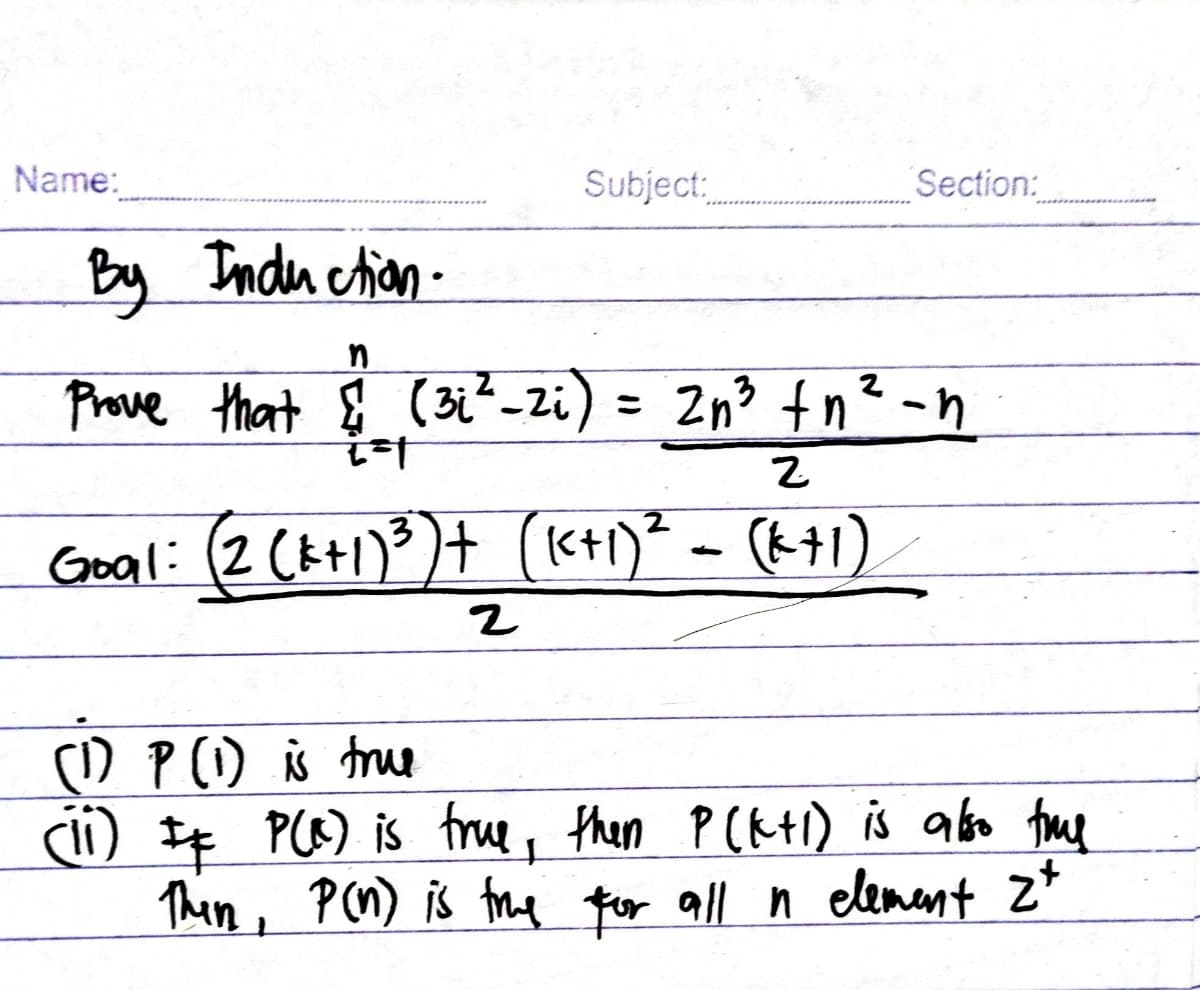 Name: Subject: Section:
By Induction.
Prove that n Σ i=1 (3i²-2i) = 2n³ + n² - n / 2
Goal: (2(k+1)³) + (k+1)² - (k+1) / 2
(i) P(1) is true
(ii) If P(k) is true, then P(k+1) is also true
Then, P(n) is true for all n element Z⁺